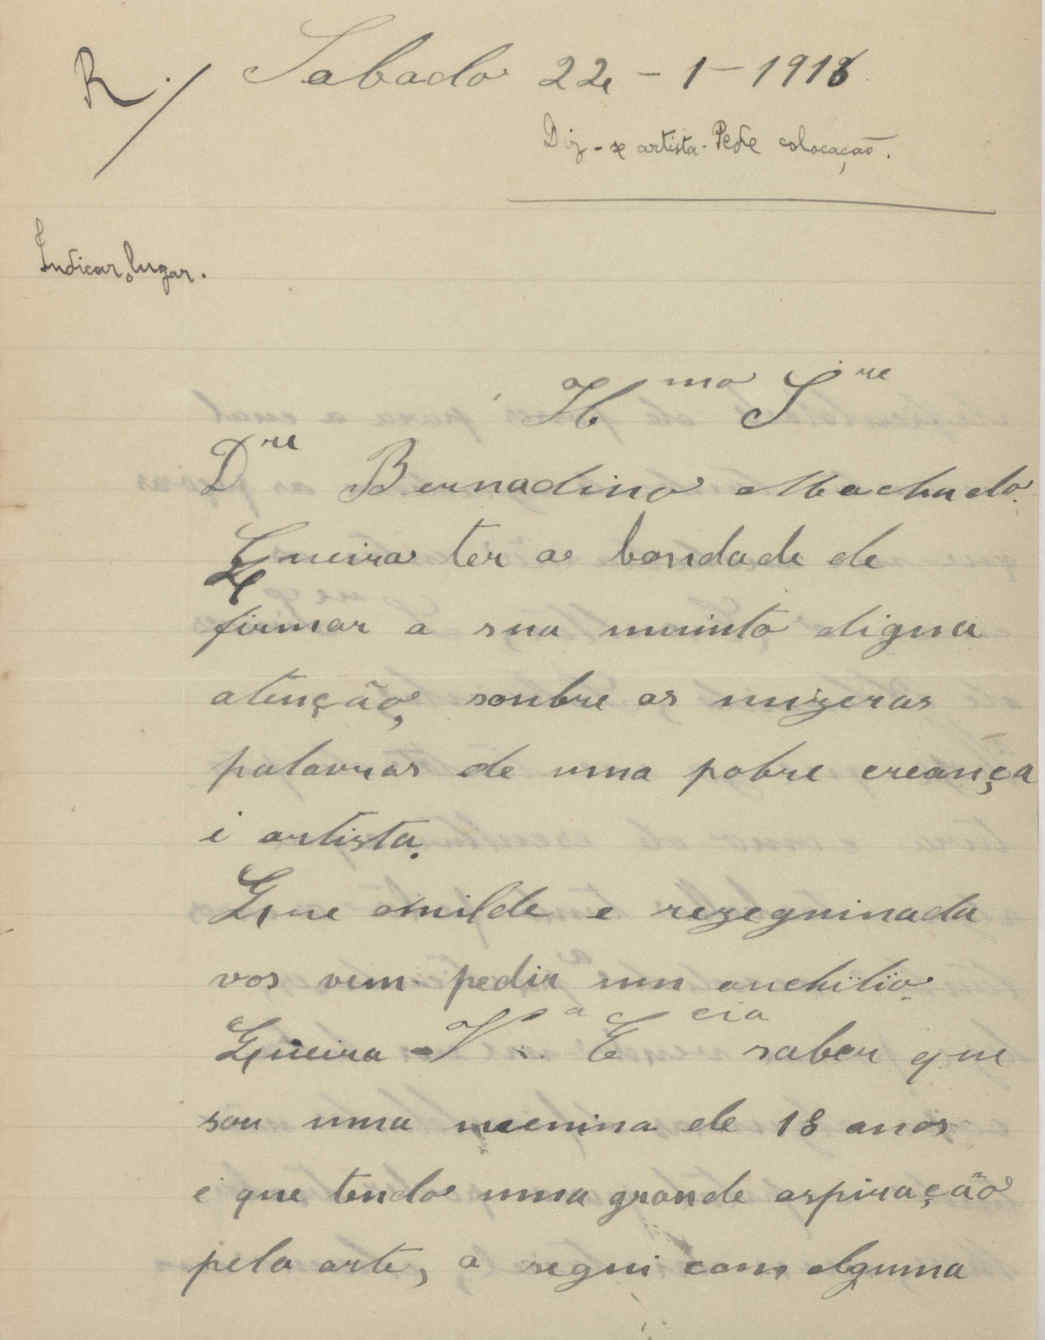 R./ Sabado 22-1-1918
Diz-se artista. Pede colocação.
Indicar lugar.
Il mo S re
D re Bernadino Machado.
Queira ter a bondade de
firmar a sua muinto digna
atenção, soubre as mizeras
palavras de uma pobre creança
i artista.
Que omilde e rezegninada
vos vem pedir um auchilio.
Queira V. a E cia saber que
sou uma meenina de 18 anos
e que tendo uma grande aspiração
pela arte, a segui com alguma